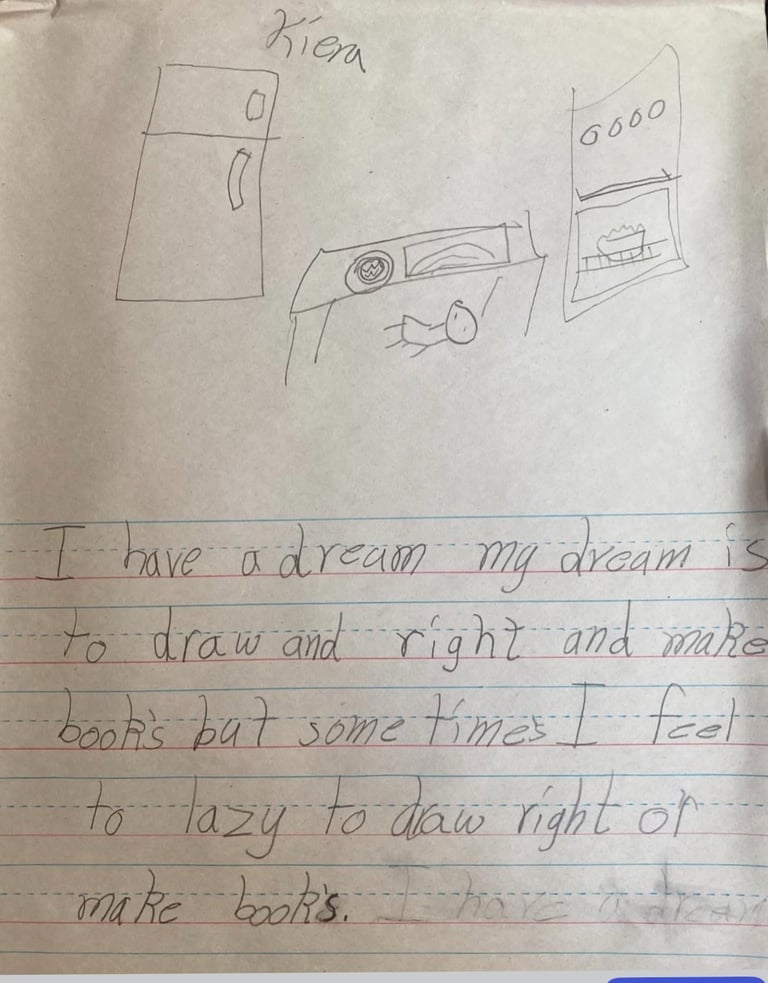 Kiera
I have a dream my dream is
to draw and right and make
book's but some time's I feel
to lazy to draw right or
make book's. I have a dream